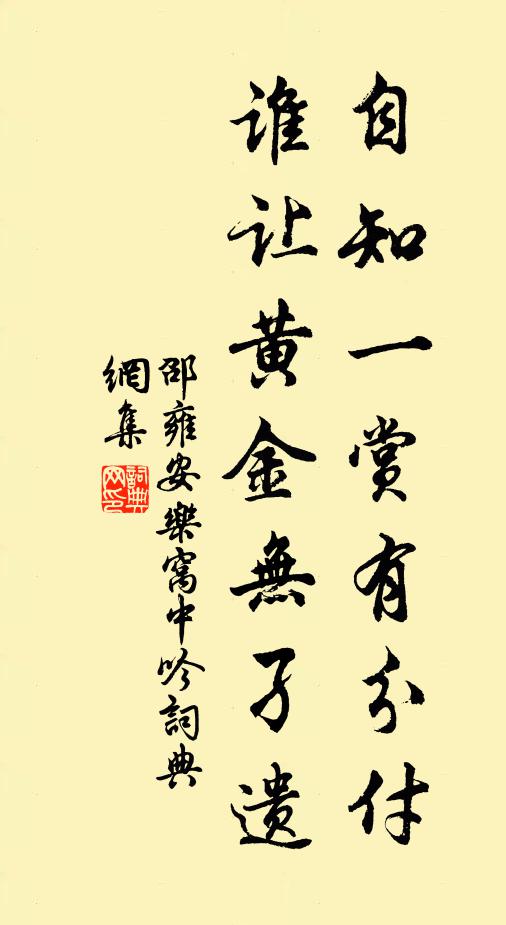 自知一赏有分付
谁让黄金無孑遗
邵雍安樂窩中吟詞典
網集
詞典網印